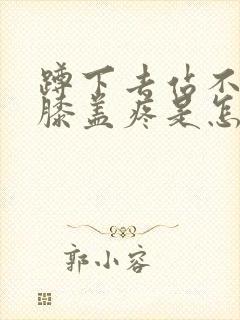 蹲下去佔不
膝盖疼是怎
郭小容